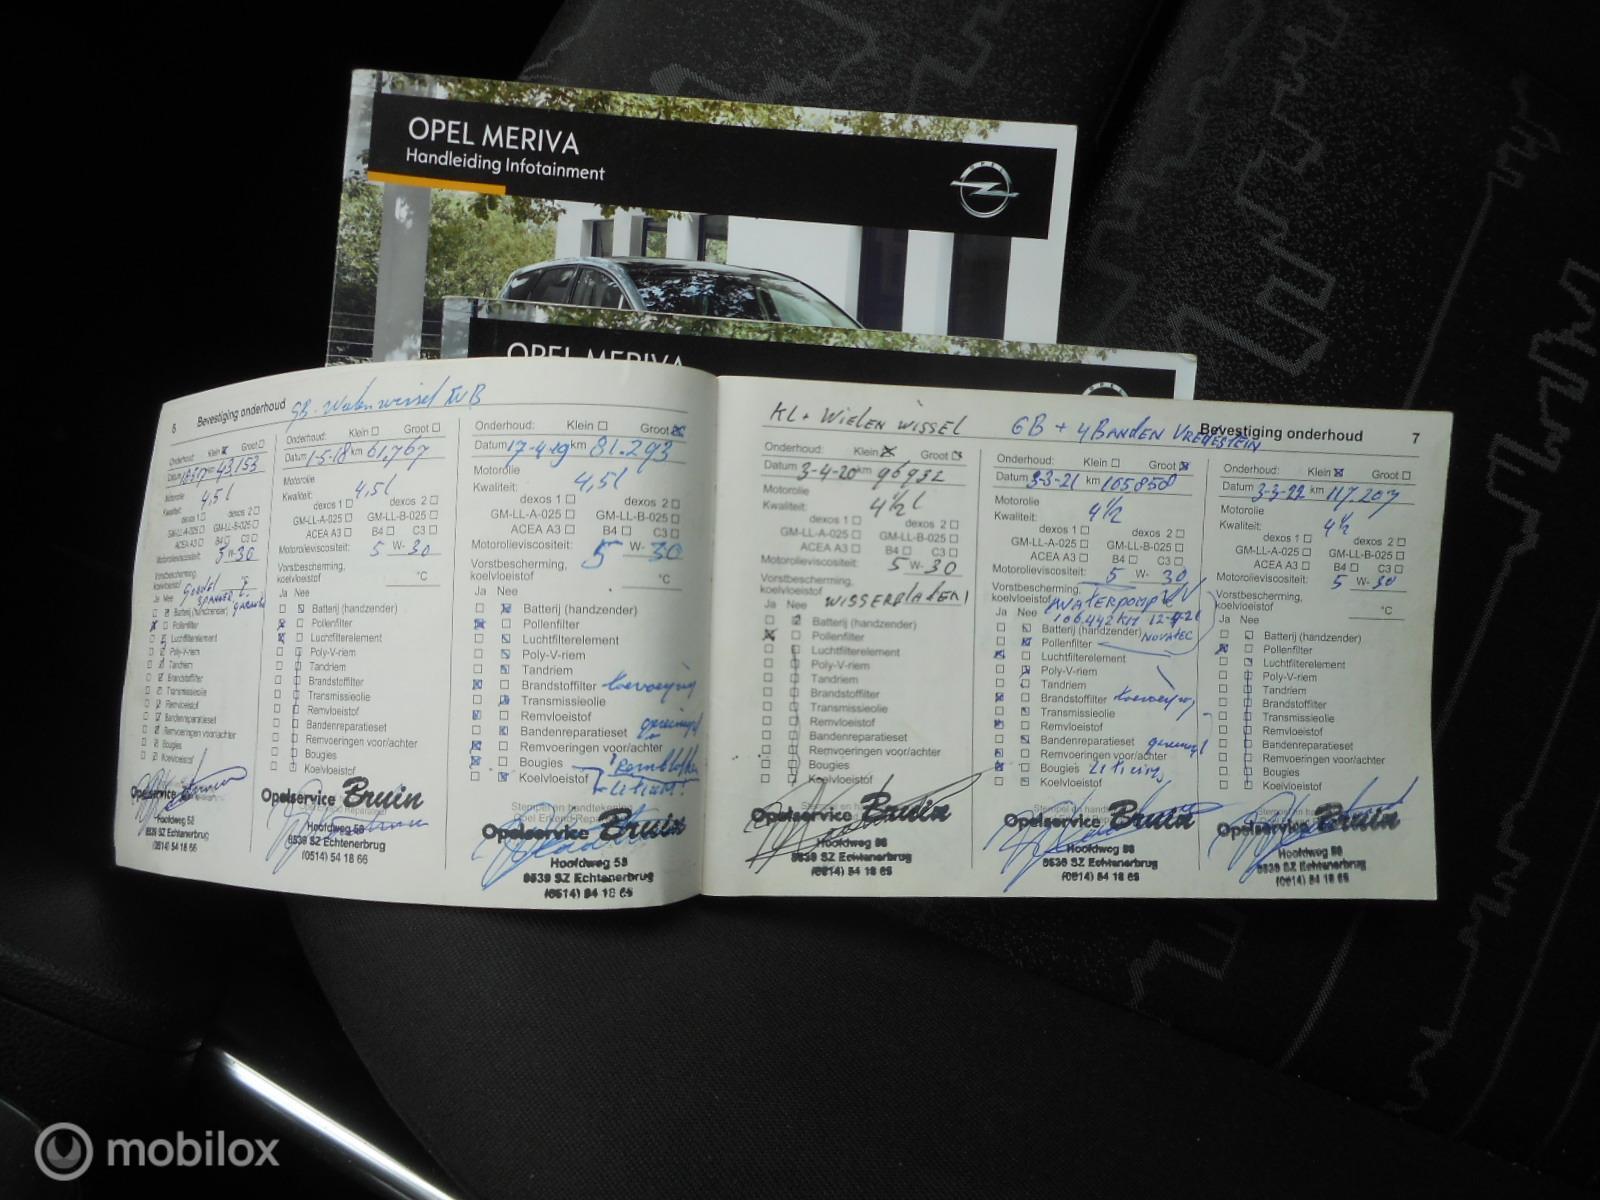 OPEL MERIVA
Handleiding Infotainment
OPEL
OPEL MERIVA
OPEL
6 Bevestiging onderhoud GB
Onderhoud: Klein Groot
43.153
Motorolie
4,5 l
Kwaliteit:
dexos 1 dexos 2
GM-LL-A-025 GM-LL-B-025
ACEA A3 B4 C3
Motorolieviscositeit: 5 W-30
Vorstbescherming,
koelvloeistof
Ja Nee
Batterij (handzender)
Pollenfilter
Luchtfilterelement
Poly-V-riem
Tandriem
Brandstoffilter
Transmissieolie
Remvloeistof
Bandenreparatieset
Remvoeringen voor/achter
Bougies
Koelvloeistof
Opelservice
Hoofdweg 58
8539 SZ Echtenerbrug
(0514) 54 18 66
Onderhoud: Klein Groot
Datum 1-5-18 km 61.767
Motorolie
Kwaliteit: 4,5 l
dexos 1 dexos 2
GM-LL-A-025 GM-LL-B-025
ACEA A3 B4 C3
5 W- 30
°C
Ja Nee
Batterij (handzender)
Pollenfilter
Luchtfilterelement
Poly-V-riem
Tandriem
Brandstoffilter
Transmissieolie
Remvloeistof
Bandenreparatieset
Remvoeringen voor/achter
Bougies
Koelvloeistof
Opelservice Bruin
Hoofdweg 58
8539 SZ Echtenerbrug
(0514) 54 18 66
Onderhoud: Klein Groot
Datum 17-4-19 km 81.293
Motorolie
Kwaliteit: 4,5 l
dexos 1 dexos 2
GM-LL-A-025 GM-LL-B-025
ACEA A3 B4 C3
Motorolieviscositeit: 5 W- 30
Vorstbescherming,
koelvloeistof °C
Ja Nee
Batterij (handzender)
Pollenfilter
Luchtfilterelement
Poly-V-riem
Tandriem
Brandstoffilter
Transmissieolie
Remvloeistof
Bandenreparatieset
Remvoeringen voor/achter
Bougies
Koelvloeistof
Stempel en handtekening
Opelservice Bruin
Hoofdweg 58
8539 SZ Echtenerbrug
(0514) 54 18 66
KL + WIELEN WISSEL
GB + 4 BANDEN VREDESTEIN
Bevestiging onderhoud 7
Onderhoud: Klein Groot
Datum 3-4-20 km 96932
Motorolie
Kwaliteit: 4 1/2 l
dexos 1 dexos 2
GM-LL-A-025 GM-LL-B-025
ACEA A3 B4 C3
Motorolieviscositeit: 5 W- 30
Vorstbescherming,
koelvloeistof °C
Ja Nee WISSERBLADEN!
Batterij (handzender)
Pollenfilter
Luchtfilterelement
Poly-V-riem
Tandriem
Brandstoffilter
Transmissieolie
Remvloeistof
Bandenreparatieset
Remvoeringen voor/achter
Bougies
Koelvloeistof
Opelservice Bruin
Hoofdweg 58
8539 SZ Echtenerbrug
(0514) 54 18 66
Onderhoud: Klein Groot
Datum 3-3-21 km 105850
Motorolie
Kwaliteit: 4 1/2
dexos 1 dexos 2
GM-LL-A-025 GM-LL-B-025
ACEA A3 B4 C3
Motorolieviscositeit: 5 W- 30
Vorstbescherming,
koelvloeistof WATERPOMP
106.442 KM
Ja Nee
Batterij (handzender)
Pollenfilter
Luchtfilterelement
Poly-V-riem
Tandriem
Brandstoffilter
Transmissieolie
Remvloeistof
Bandenreparatieset
Remvoeringen voor/achter
Bougies
Koelvloeistof
Opelservice Bruin
Hoofdweg 58
8539 SZ Echtenerbrug
(0514) 54 18 66
Onderhoud: Klein Groot
Datum 3-3-22 km 117.207
Motorolie
Kwaliteit: 4 1/2
dexos 1 dexos 2
GM-LL-A-025 GM-LL-B-025
ACEA A3 B4 C3
Motorolieviscositeit: 5 W- 30
Vorstbescherming,
koelvloeistof °C
Ja Nee
Batterij (handzender)
Pollenfilter
Luchtfilterelement
Poly-V-riem
Tandriem
Brandstoffilter
Transmissieolie
Remvloeistof
Bandenreparatieset
Remvoeringen voor/achter
Bougies
Koelvloeistof
Opelservice Bruin
Hoofdweg 58
8539 SZ Echtenerbrug
(0514) 54 18 66
mobilox